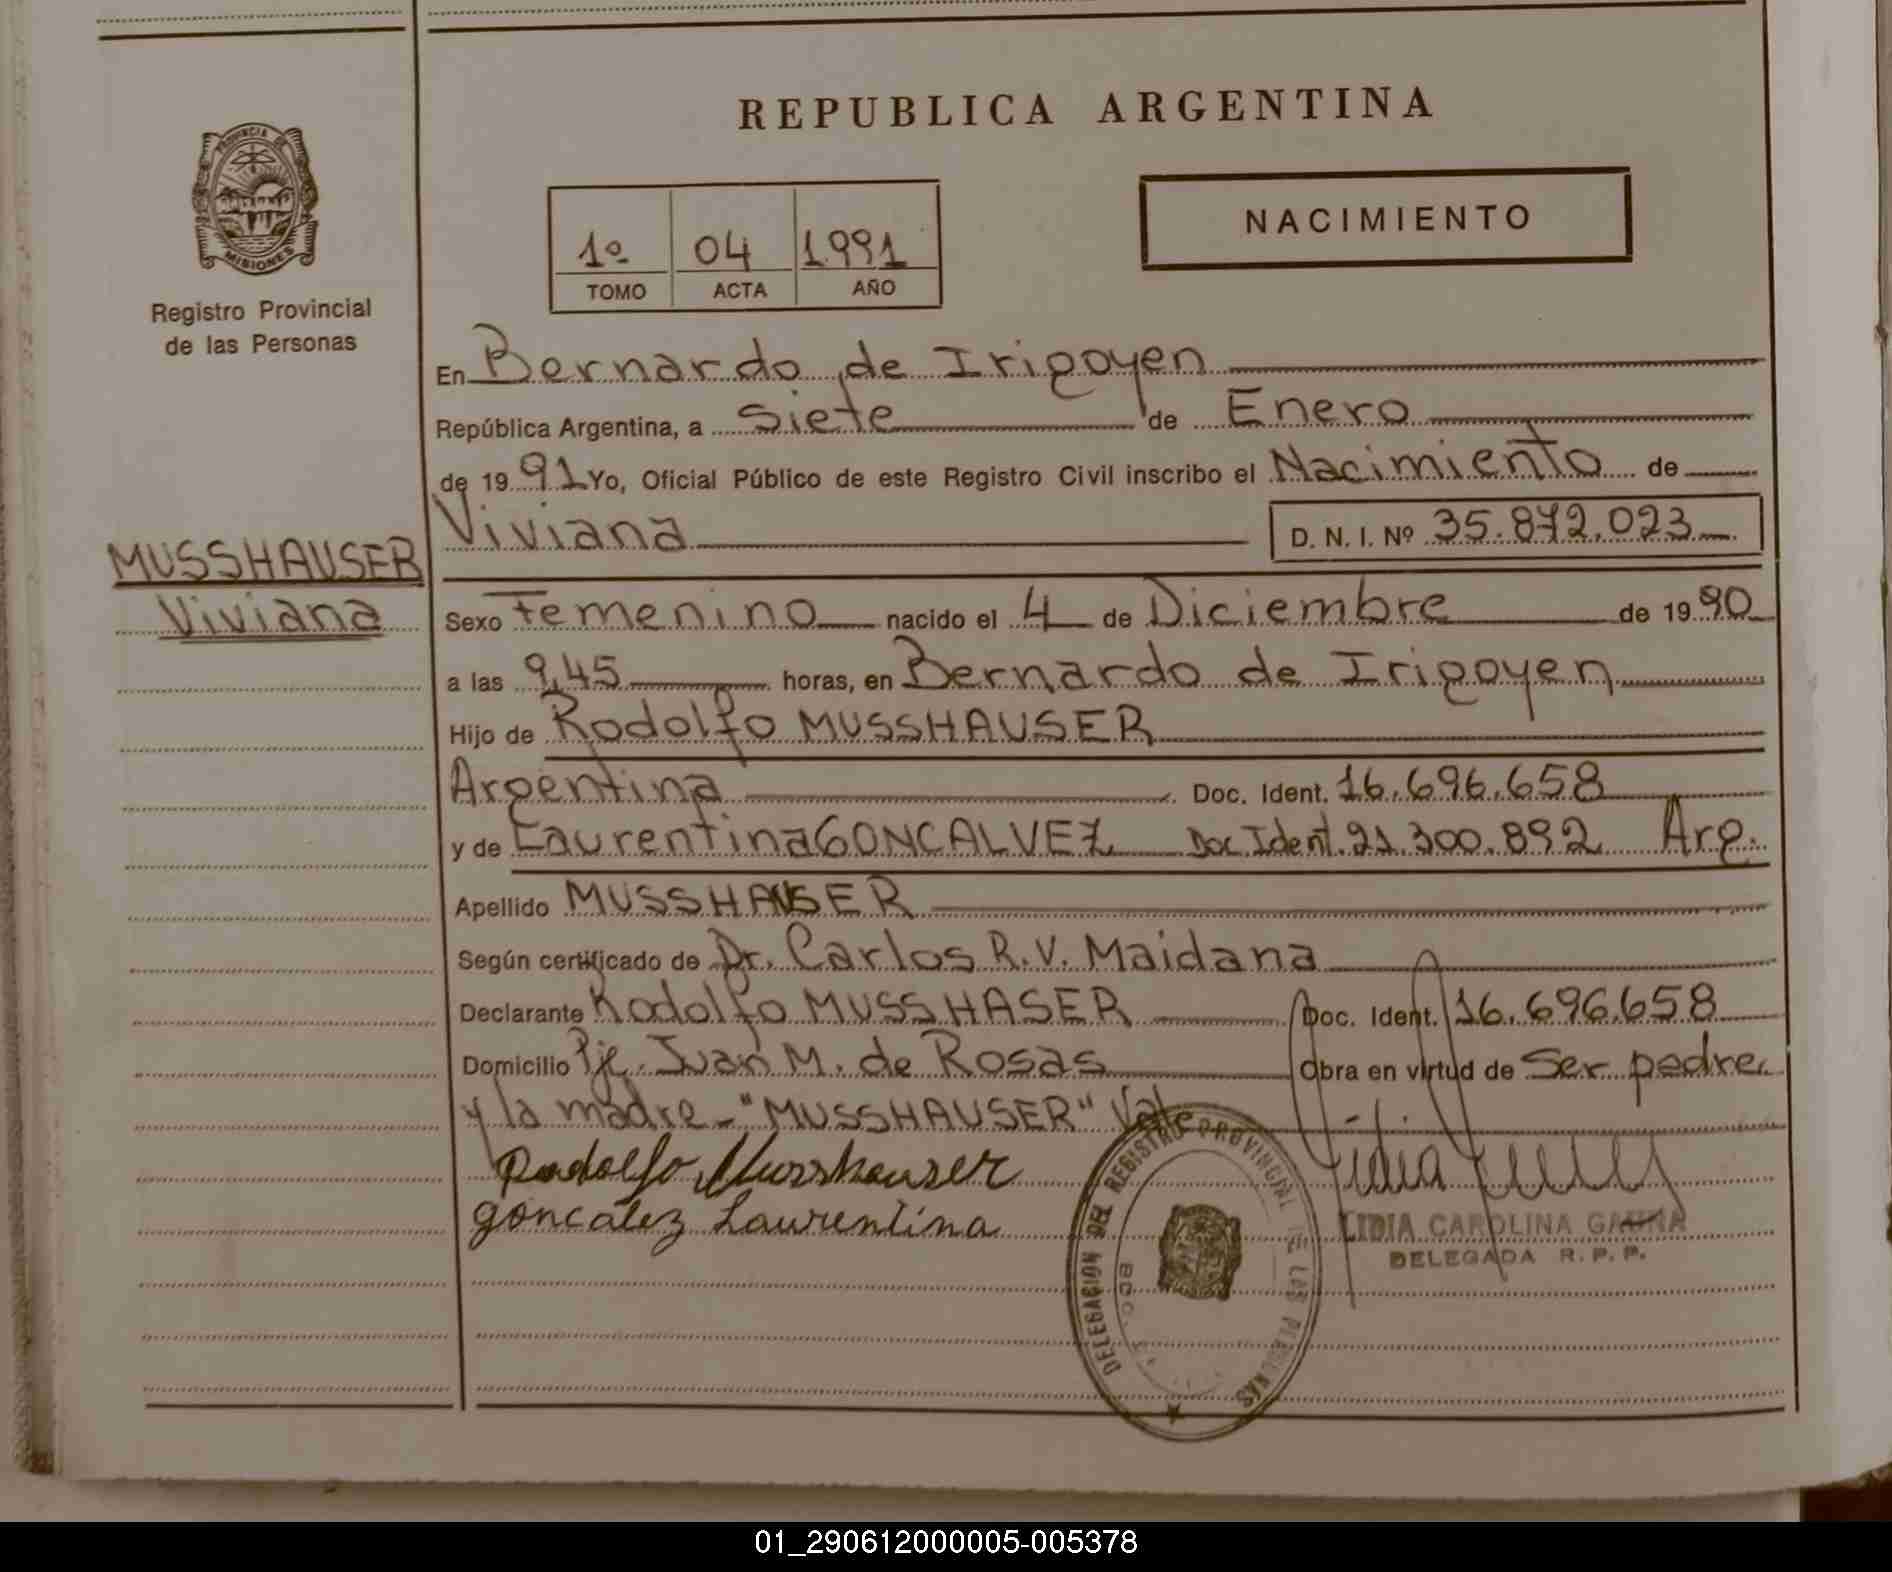 REPUBLICA ARGENTINA
PROVINCIA DE
MISIONES
Registro Provincial
de las Personas
NACIMIENTO
1º 04 1991
TOMO ACTA AÑO
En Bernardo de Irigoyen
República Argentina, a siete de Enero
de 1991 Yo, Oficial Público de este Registro Civil inscribo el Nacimiento de
Viviana D. N. I. Nº 35.872.023
MUSSHAUSER
Viviana
Sexo Femenino nacido el 4 de Diciembre de 1990
a las 9,45 horas, en Bernardo de Irigoyen
Hijo de Rodolfo MUSSHAUSER
Argentina Doc. Ident. 16.696.658
y de Laurentina GONCALVEZ Doc Ident. 21.300.892 Arg.
Apellido MUSSHAUSER
Según certificado de Dr. Carlos R. V. Maidana
Declarante Rodolfo MUSSHASER Doc. Ident. 16.696.658
Domicilio Pje. Juan M. de Rosas Obra en virtud de Ser padre
y la madre - "MUSSHAUSER" Vale
Rodolfo Musshauser
goncalez Laurentina
DELEGACION DEL REGISTRO PROVINCIAL DE LAS PERSONAS
LIDIA CAROLINA
DELEGADA R. P. P.
01_290612000005-005378